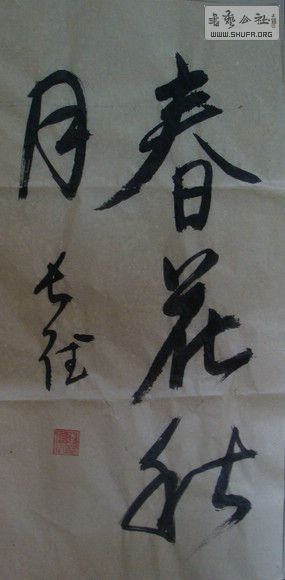 書藝公社
WWW.SHUFA.ORG
春花秋
月
长